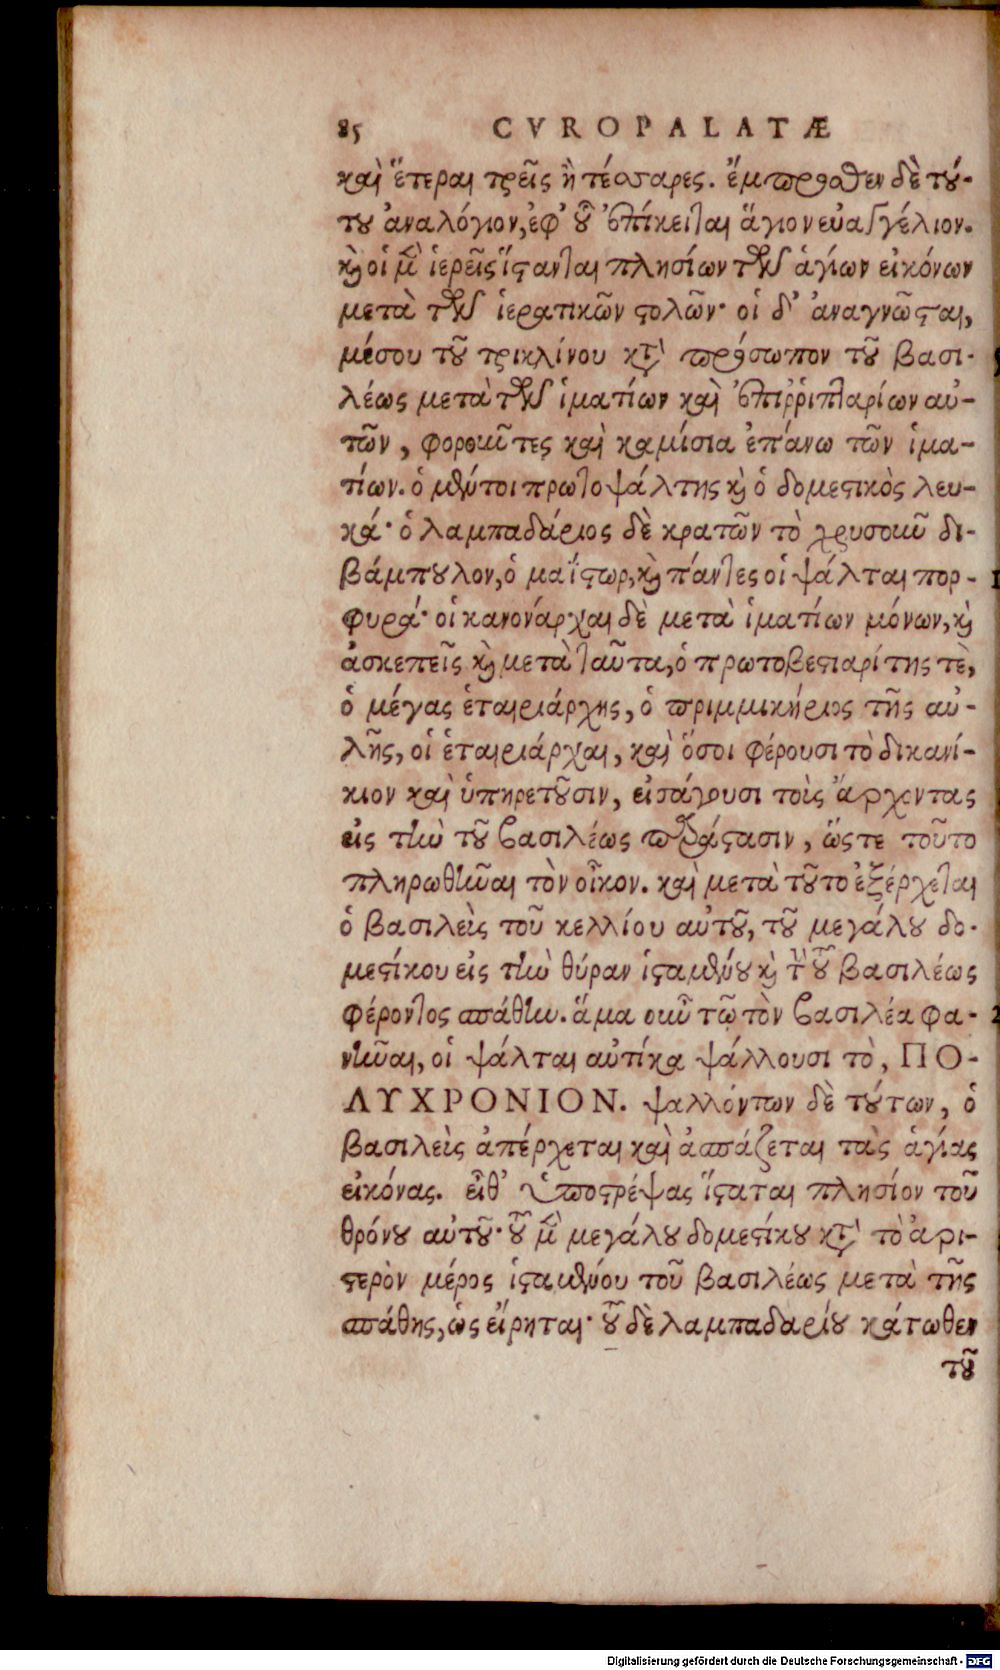 85 CVROPALATÆ
καὶ ἕτεραι τρεῖς ἢ τέσσαρες. ἔμπροσθεν δὲ τού-
του ἀναλόγιον, ἐφ' οὗ ἐπίκειται ἅγιον εὐαγγέλιον.
καὶ οἱ μὲν ἱερεῖς ἵστανται πλησίων τῶν ἁγίων εἰκόνων
μετὰ τῶν ἱερατικῶν στολῶν· οἱ δ' ἀναγνῶσται,
μέσου τοῦ τρικλίνου κατὰ πρόσωπον τοῦ βασι-
λέως μετὰ τῶν ἱματίων καὶ ἐπιῤῥιπταρίων αὐ-
τῶν, φοροῦντες καὶ καμίσια ἐπάνω τῶν ἱμα-
τίων. ὁ μέντοι πρωτοψάλτης καὶ ὁ δομεστικὸς λευ-
κά· ὁ λαμπαδάριος δὲ κρατῶν τὸ χρυσοῦν δι-
βάμπουλον, ὁ μαΐστωρ, καὶ πάντες οἱ ψάλται πορ-
φυρά· οἱ κανονάρχαι δὲ μετὰ ἱματίων μόνων, καὶ
ἀσκεπεῖς καὶ μετὰ ταῦτα, ὁ πρωτοβεστιαρίτης τὲ,
ὁ μέγας ἑταιριάρχης, ὁ πριμμικήριος τῆς αὐ-
λῆς, οἱ ἑταιριάρχαι, καὶ ὅσοι φέρουσι τὸ δικανί-
κιον καὶ ὑπηρετοῦσιν, εἰσάγουσι τοὺς ἄρχοντας
εἰς τὴν τοῦ βασιλέως παράστασιν, ὥστε τοῦτο
πληρωθῆναι τὸν οἶκον. καὶ μετὰ τοῦτο ἐξέρχεται
ὁ βασιλεὺς τοῦ κελλίου αὐτοῦ, τοῦ μεγάλου δο-
μεστίκου εἰς τὴν θύραν ἱσταμένου καὶ τὴν τοῦ βασιλέως
φέροντος σπάθην. ἅμα οὖν τῷ τὸν βασιλέα φα-
νῆναι, οἱ ψάλται αὐτίκα ψάλλουσι τὸ, ΠΟ-
ΛΥΧΡΟΝΙΟΝ. ψαλλόντων δὲ τούτων, ὁ
βασιλεὺς ἀπέρχεται καὶ ἀσπάζεται τὰς ἁγίας
εἰκόνας. εἶθ' ὑποστρέψας ἵσταται πλησίον τοῦ
θρόνου αὐτοῦ· τοῦ μὲν μεγάλου δομεστίκου κατὰ τὸ ἀρι-
στερὸν μέρος ἱσταμένου τοῦ βασιλέως μετὰ τῆς
σπάθης, ὡς εἴρηται· τοῦ δὲ λαμπαδαρίου κάτωθεν
τοῦ
Digitalisierung gefördert durch die Deutsche Forschungsgemeinschaft - DFG